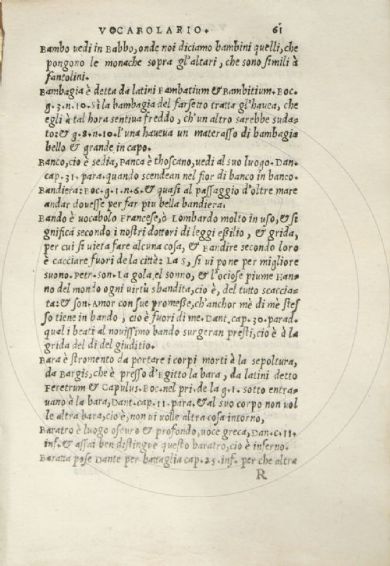 VOCABOLARIO. 61
Bambo vedi in Babbo, onde noi diciamo bambini quelli, che
pongono le monache sopra gl'altari, che sono simili à
fantolini.
Bambagia è detta da latini Bambatium & Bambitium. Boc.
g. 3. n. 10. Si la bambagia del farsetto tratta gl'hauca, che
egli à tal hora sentiua freddo, ch'un altro sarebbe suda-
to: & g. 8. n. 10. l'una haueua un materasso di bambagia
bello & grande in capo.
Banco, cio è sedia, Panca è thoscano, uedi al suo luogo. Dan.
cap. 31. para. quando scendean nel fior di banco in banco.
Bandiera: Boc. g. 1. n. 6. & quasi al passaggio d'oltre mare
andar douesse per far piu bella bandiera.
Bando è uocabolo Francese, ò Lombardo molto in uso, & si
gnifica secondo i nostri dottori di leggi essilio, & grida,
per cui si uieta fare alcuna cosa, & Bandire secondo loro
è cacciare fuori de la città: La S, si ui pone per migliore
suono. Petr. son. La gola, el sonno, & l'ociose piume Han-
no del mondo ogni uirtù sbandita, cio è, del tutto scaccia-
ta: & son. Amor con sue promesse, ch'anchor mè di mè stes
so tiene in bando, cio è fuori di me. Dant. cap. 30. parad.
qual i beati al nouissimo bando surgeran presti, cio è à la
grida del dì del giuditio.
Bara è stromento da portare i corpi morti à la sepoltura,
da Bargis, che è presso d'Egitto la bara, da latini detto
Feretrum & Capulus. Boc. nel pri. de la g. 1. sotto entra-
uano à la bara, Dant. cap. 11. para. & al suo corpo non vol
le altra bara, cio è, non ui uolle altra cosa intorno,
Baratro è luogo oscuro & profondo, uoce greca, Dan. c. 11.
inf. & assai ben distingue questo baratro, cio è inferno.
Baratta pose Dante per battaglia cap. 25. inf. per che altra
R